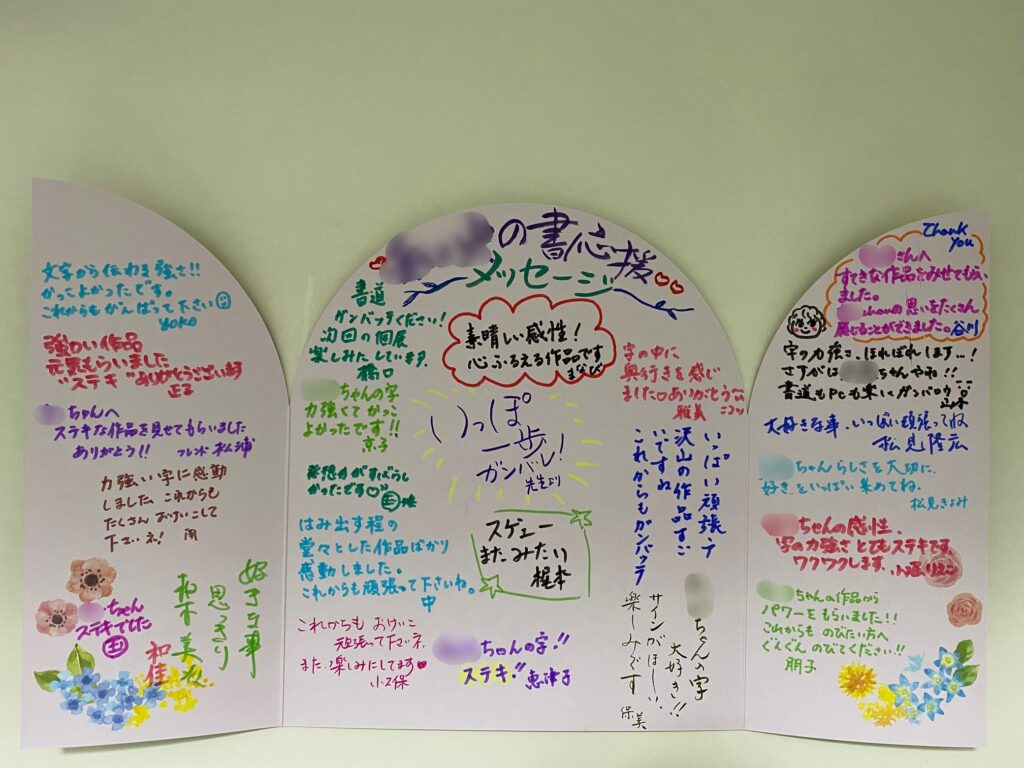 の書応援
メッセージ
文字から伝わる強さ!!
かってよかったです。
これからもがんばって下さい
YOKO
強わい作品
元気もらいました
"ステキ"ありがとうございます
正子
ちゃんへ
ステキな作品を見せてもらいました
ありがとう!! フレンド 松浦
力強い字に感動
しました これからも
たくさん おけいこして
下さいネ!
好きな事
思っきり
和木美
和佳
ちゃん
ステキでした
書道
ガンバッテください!
次回の個展
楽しみたしています。
橋口
ちゃんの字
力強くてかっこ
よかったです!!
京子
発想力がすばらし
かったです♡
はみ出す程の
堂々とした作品ばかり
感動しました。
これからも頑張って下さいね。
中
これからも おけいこ
頑張って下さいネ
また楽しみにしてます
小久保
素晴しい感性!
心ふるえる作品です
まなび
いっぽ
一歩
ガンバレ!
先生より
スゲェー
またみたい
梶本
ちゃんの字!!
ステキ!! 恵津子
字の中に
奥行きを感じ
ました。ありがとう
雅美
いっぱい頑張って
沢山の作品すご
いですね
これからもガンバッテ
ちゃんの字
大好き!!
サインがほしい、
楽しみです
保美
Thank
You
さんへ
すてきな作品をみせてもらい
ました。
の思いをたくさん
感じることができました。谷川
字の力強さ、ほれぼれします…!
さすが は ちゃんやね!!
書道もPCも楽しくガンバロウ
大好きな事、いっぱい頑張ってね
松見隆広
ちゃんらしさを大切に、
好きをいっぱい集めてね。
松見きよみ
ちゃんの感性、
字の力強さ とてもステキです
ワクワクします。
ちゃんの作品から
パワーをもらいました!!
これからも のびたい方へ
ぐんぐん のびてください!!
朋子